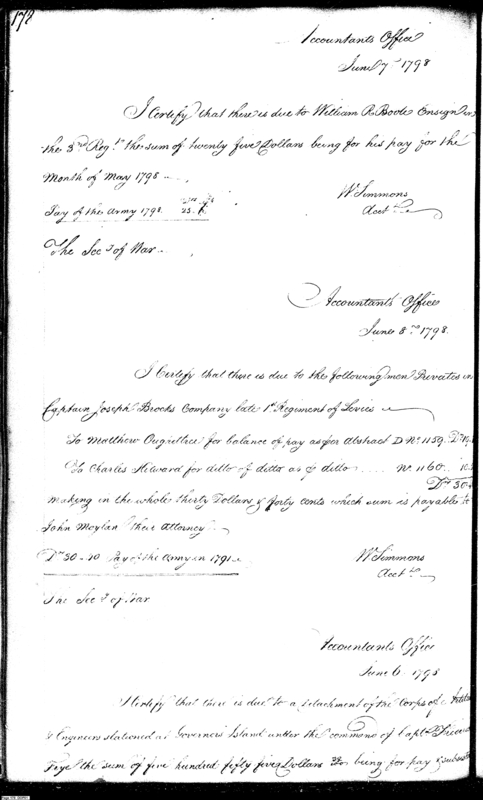 178
Accountants Office
June 7th 1798
I Certify that there is due to William R. Boote Ensign in
the 3rd Regt. the sum of twenty five Dollars being for his pay for the
Month of May 1798
Pay of the Army 1798. 25.
Wm Simmons
Acct.
The Secy of War
Accountants Office
June 8th 1798
I Certify that there is due to the following men Privates in
Captain Joseph Brocks Company late 1st Regiment of Levies
To Matthew for balance of pay as per abstract D No. 1159.
To Charles for ditto of ditto as per ditto .... No 1160.
Drs 30.
making in the whole thirty Dollars & forty cents which sum is payable to
John Moylan their Attorney
Drs 30-40 Pay of the Army in 1791
Wm Simmons
Acct.
The Secy of War
Accountants Office
June 6 1798
I Certify that there is due to a detachment of the Corps of
& Engineers stationed at Governors Island under the command of Captn
Frye the sum of five hundred fifty five Dollars being for pay &